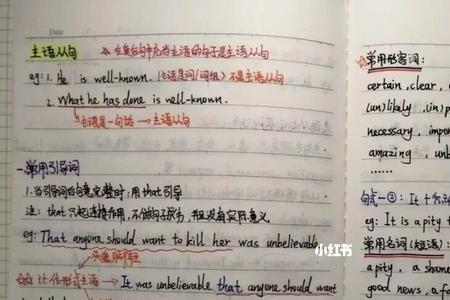 Date
主语从句 ☆在复合句中充当主语的句子是主语从句
eg: 1. He is well-known. (主语是词/词组) 不是主语从句
2. What he has done is well-known.
主语是一句话 → 主语从句
一.常用引导词
1.当引导词后句意完整时:用that引导
注: that 只起连接作用,不做句子成分,并且没有实际意义
eg: That anyone should want to kill her was unbelievable.
头重脚轻
☆☆ it 作形式主语 → It was unbelievable that anyone should want
☆常用形容词:
certain, clear,
(un)likely, (im)p
necessary, impor
amazing, unb
......
句式一②: It +
eg: It is a pity t
常用名词(短语):
a pity, a sham
good news, a fo
小红书